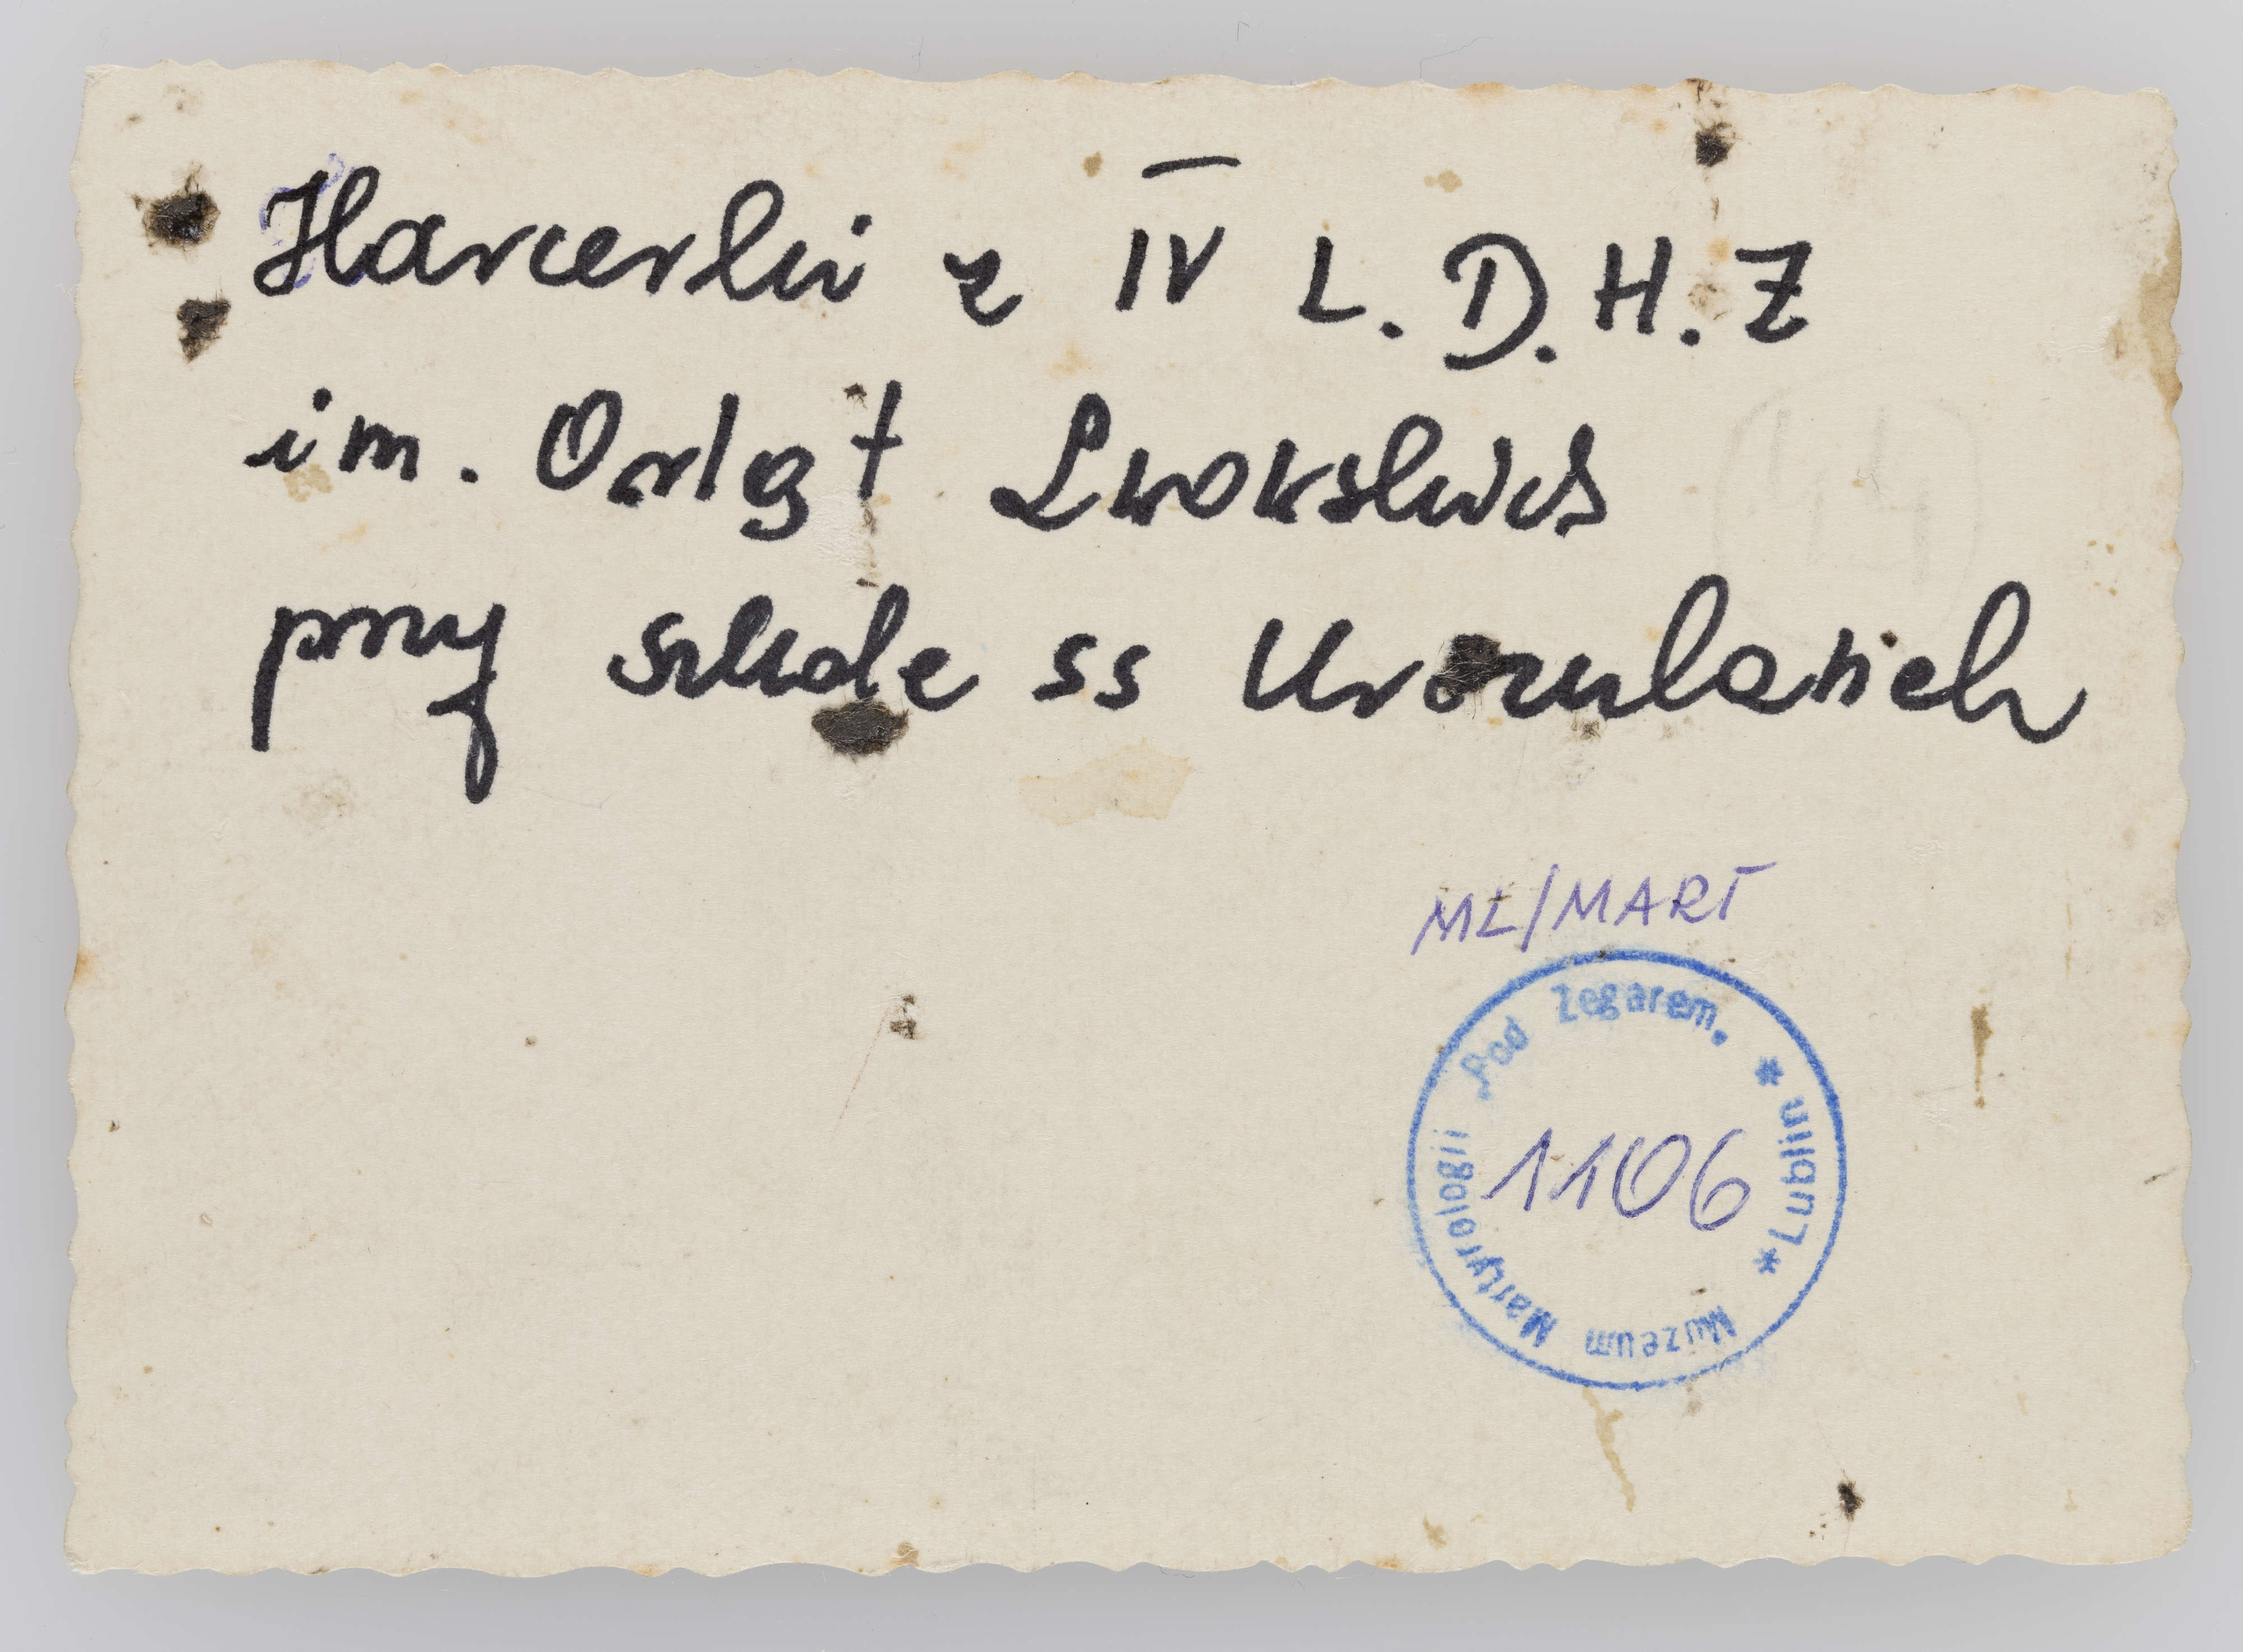 Harcerki z IV L. D. H. Ż
im. Orląt Lwowskich
przy szkole ss Urszulanek
ML/MART
Muzeum Martyrologii „Pod Zegarem” * Lublin *
1106